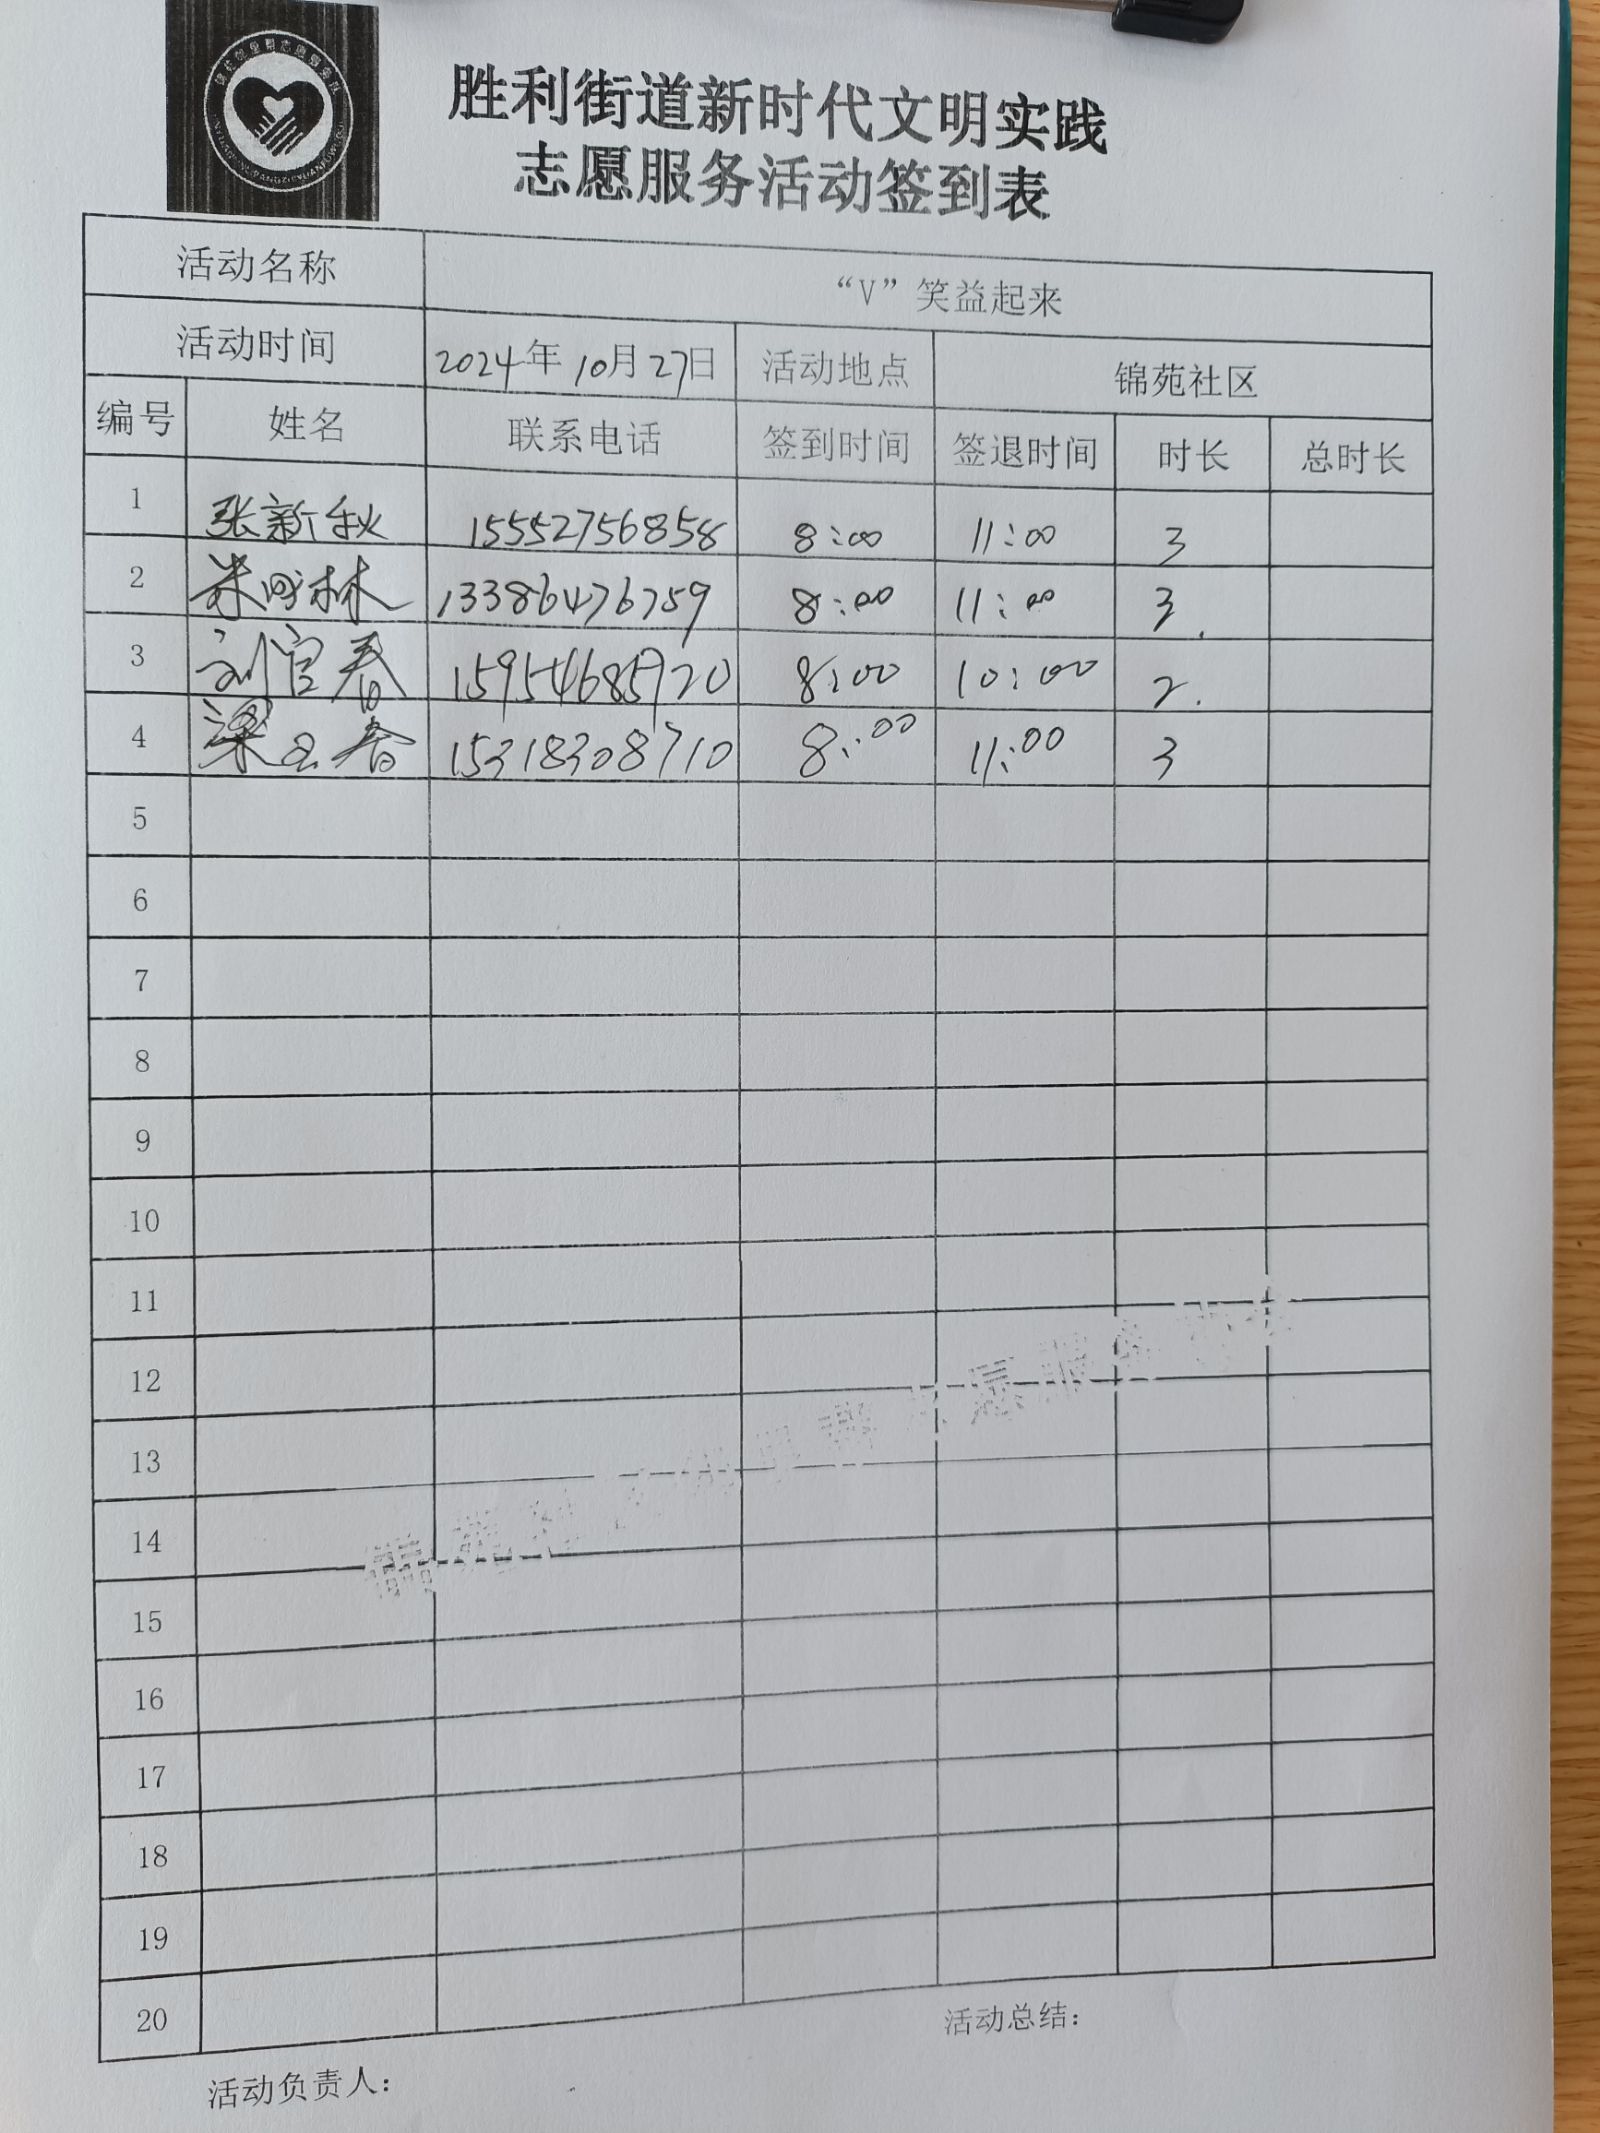 胜利街道新时代文明实践
志愿服务活动签到表
活动名称 “V”笑益起来
活动时间 2024年10月27日 活动地点 锦苑社区
编号 姓名 联系电话 签到时间 签退时间 时长 总时长
1 张新秋 15552756858 8:00 11:00 3
2 13386476759 8:00 11:00 3.
3 刘官春 15954685920 8:00 10:00 2.
4 梁玉春 15318308710 8:00 11:00 3
5
6
7
8
9
10
11
12
13
14
15
16
17
18
19
20
锦苑社区邻里帮志愿服务
活动总结：
活动负责人：